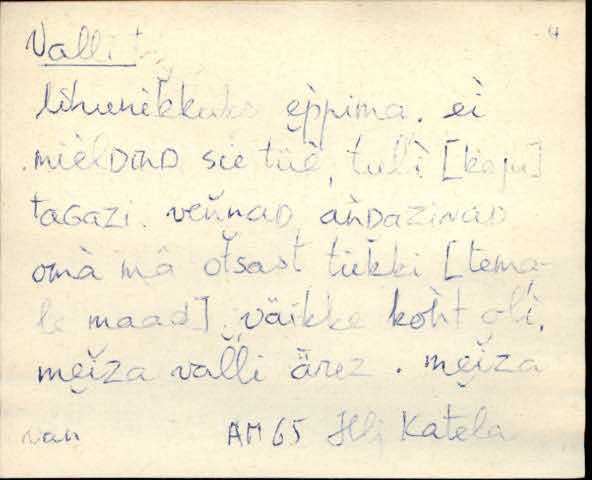 Valli 4
lihunikkuks eppima. ei
mielDÜnD sie tüö, tuli [koju]
taGazi. veňnaD, aňDaziνaD
omà mā otsast tiekki [tema-
le maad], väikke koht oli.
meiza valli ärez. meiza
van AM 65 Hlj Katela